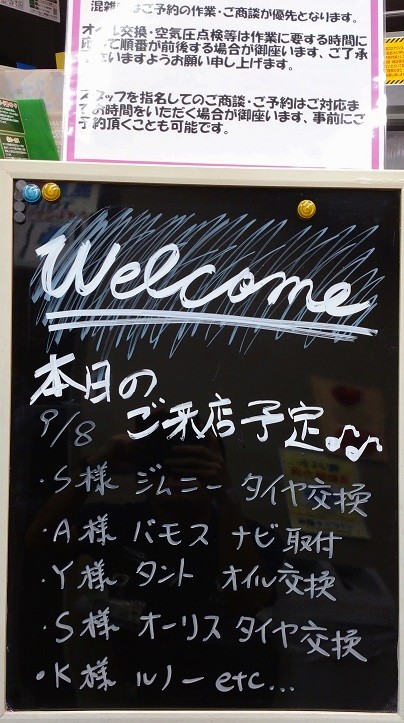 混雑時はご予約の作業・ご商談が優先となります。
オイル交換・空気圧点検等は作業に要する時間に
応じて順番が前後する場合が御座います、ご了承
くださいますようお願い申し上げます。
スタッフを指名してのご商談・ご予約はご対応ま
でお時間をいただく場合が御座います、事前にご
予約頂くことも可能です。
Welcome
本日の
9/8 ご来店予定♪♪
・S様 ジムニー タイヤ交換
・A様 バモス ナビ取付
・Y様 タント オイル交換
・S様 オーリス タイヤ交換
・K様 ルノー etc...